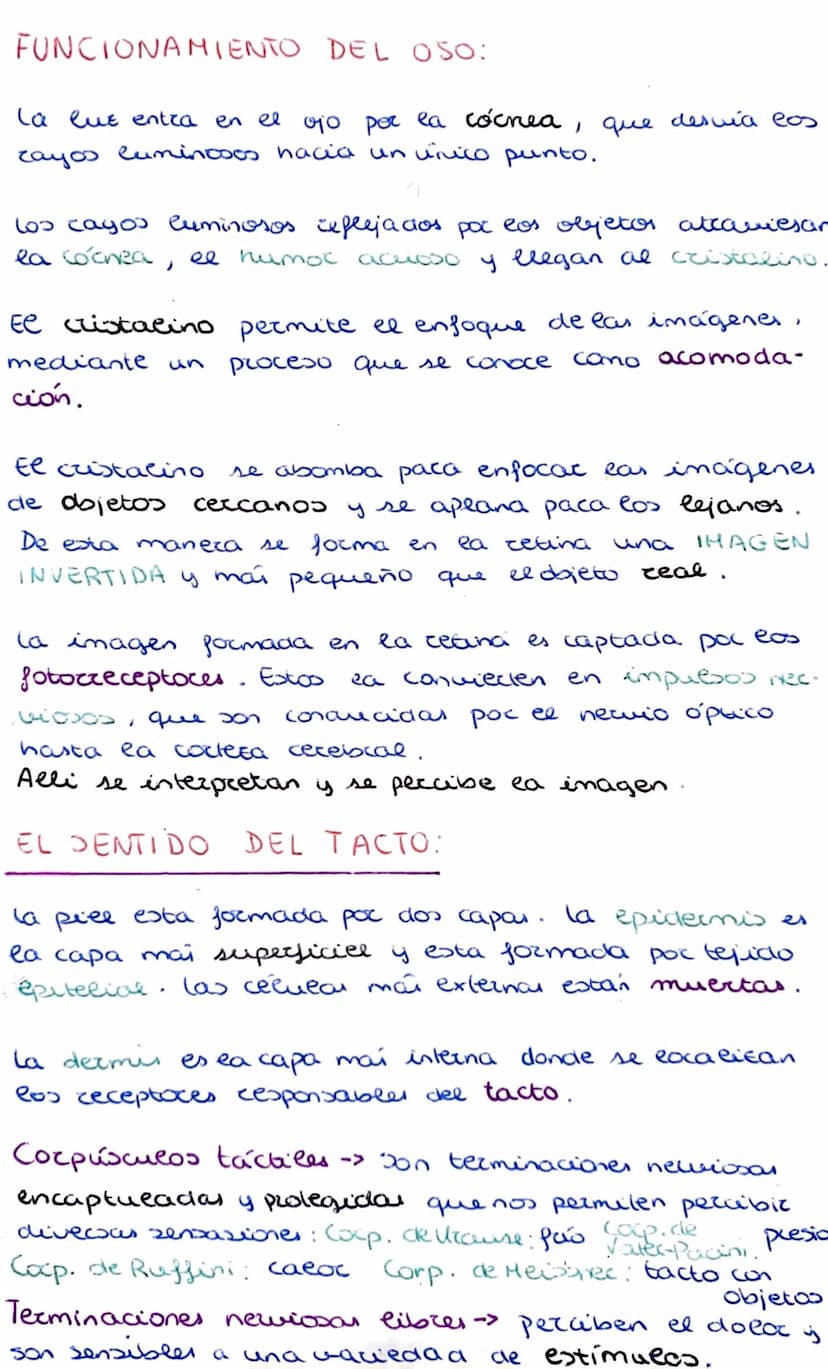 FUNCIONAMIENTO DEL OJO:
La luz entra en el ojo por la córnea, que desvía los
rayos luminosos hacia un único punto.
Los rayos luminosos reflejados por los objetos atraviesan
la córnea, el humor acuoso y llegan al cristalino.
El cristalino permite el enfoque de las imágenes,
mediante un proceso que se conoce como acomoda-
ción.
El cristalino se abomba para enfocar las imágenes
de objetos cercanos y se aplana para los lejanos.
De esta manera se forma en la retina una IMAGEN
INVERTIDA y más pequeño que el objeto real.
La imagen formada en la retina es captada por los
fotorreceptores. Estos la convierten en impulsos ner-
viosos, que son conducidas por el nervio óptico
hasta la corteza cerebral.
Alli se interpretan y se percibe la imagen.
EL SENTIDO DEL TACTO:
La piel esta formada por dos capas. La epidermis es
la capa más superficiel y esta formada por tejido
epitelial. Las células más externas están muertas.
La dermis es la capa más interna donde se localizan
los receptores responsables del tacto.
Corpúsculos táctiles -> Son terminaciones nerviosas
encaptuladas y protegidas que nos permiten percibir
diversas sensaciones: Corp. de Krause: frío Corp. de Vater-Pacini: presió
Corp. de Ruffini: calor Corp. de Meissner: tacto con
objetos
Terminaciones nerviosas libres -> perciben el dolor y
son sensibles a una variedad de estímulos.